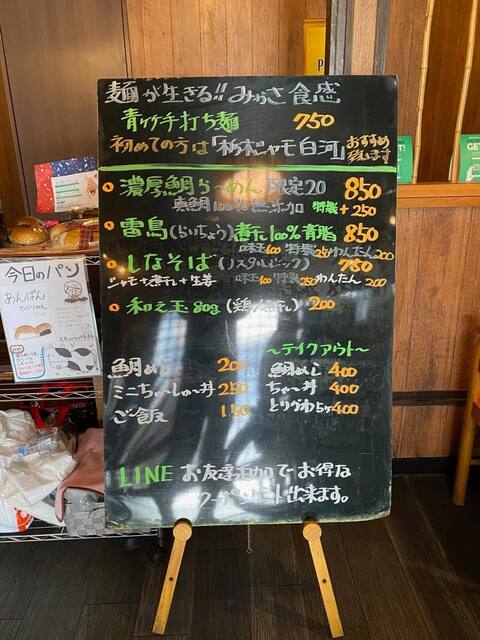 麺が生きる!! みかさ食感
青竹手打ち麺 750
初めての方は「栃木シャモ白河」おすすめ致します
濃厚鯛らーめん 限定20 850
真鯛100% 無添加 特製+250
雷鳥(らいちょう)煮干100%青脂 850
味玉100 特製250 わんたん200
しなそば(ノスタルジック) 750
シャモ+煮干+生姜 味玉100 特製250 わんたん200
和え玉80g(鶏/煮干) 200
鯛めし 200
ミニちゃーしゅー丼 250
ご飯 150
〜テイクアウト〜
鯛めし 400
ちゃー丼 400
とりがわちゃ 400
LINE お友達追加でお得な
クーポンゲット出来ます。
今日のパン
あんぱん
GET
GE
P